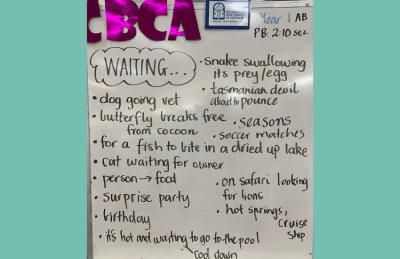 CBCA
Year 1 AB
PB: 2:10 sec
WAITING...
• snake swallowing
its prey/egg
• tasmanian devil
about to pounce
• dog going vet
• butterfly breaks free
from cocoon
• seasons
• soccer matches
• for a fish to bite in a dried up lake
• cat waiting for owner
• person → food
• surprise party
• birthday
• on safari looking
for lions
• hot springs,
cruise
ship
• it's hot and waiting to go to the pool
cool down